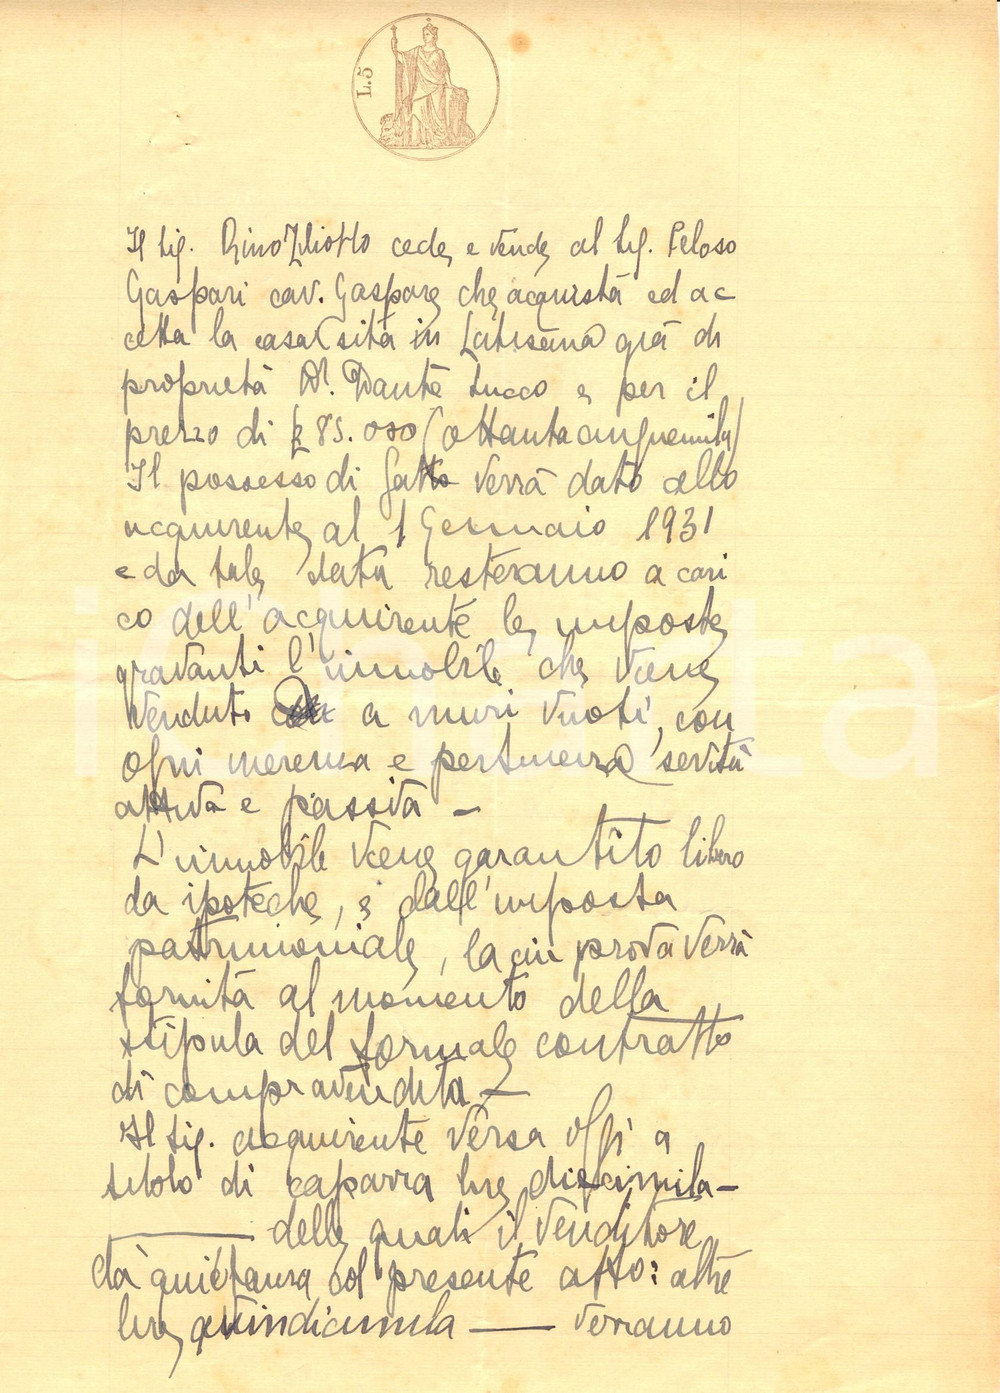 L. 5
Il Sig. Rino Zliotto cede e vende al Sig. Peloso
Gaspari cav. Gaspare che acquista ed ac
cetta la casa sita in Latisana già di
proprietà Dr. Dante Zucco e per il
prezzo di £ 85.000 (ottantacinquemila)
Il possesso di fatto verrà dato allo
acquirente al 1 Gennaio 1931
e da tale data resteranno a cari
co dell'acquirente le imposte
gravanti l'immobile che viene
venduto a muri vuoti, con
ogni inerenza e pertinenza servitù
attiva e passiva —
L'immobile viene garantito libero
da ipoteche, e dall'imposta
patrimoniale, la cui prova verrà
fornita al momento della
stipula del formale contratto
di compravendita —
Il Sig. acquirente versa oggi a
titolo di caparra lire diecimila —
— delle quali il venditore
dà quietanza col presente atto: altre
lire quindicimila — verranno